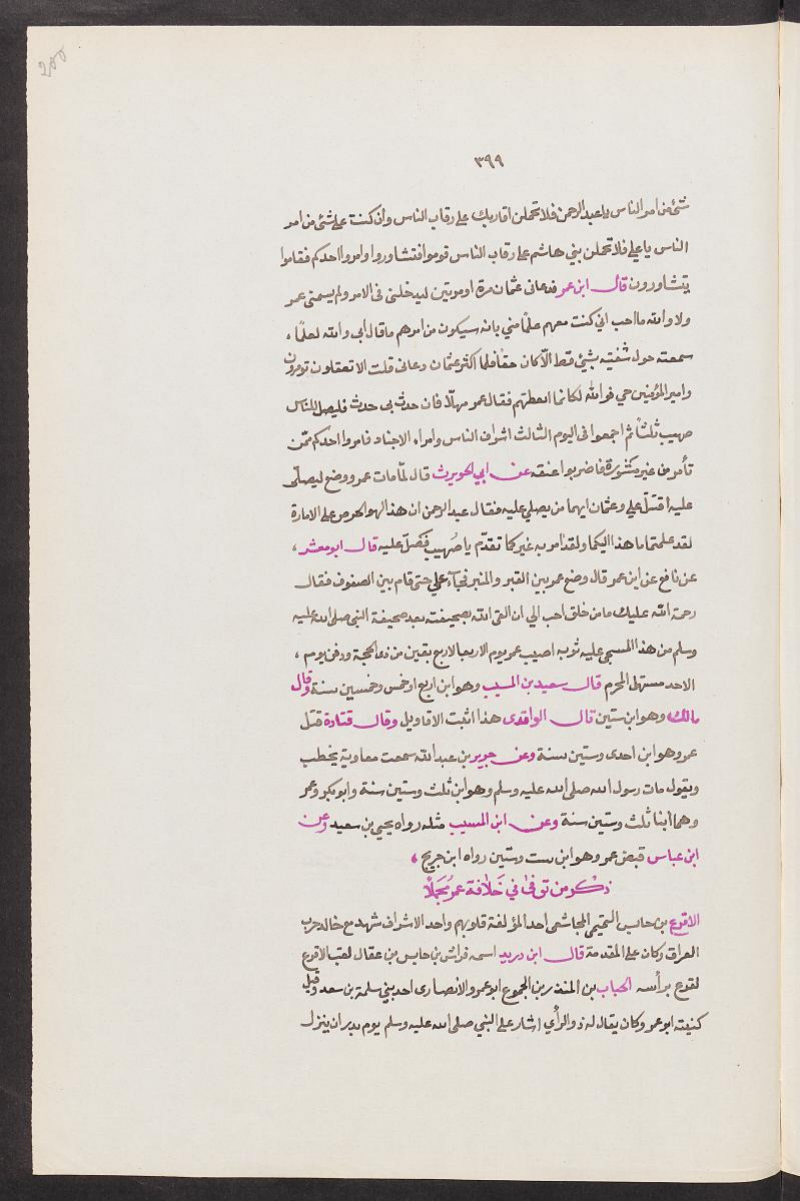 200
٣٩٩
شئ من امر الناس ياعبدالرحمن فلا تحملن اقاربك على رقاب الناس وان كنت على شئ من امر
الناس يا علي فلا تحملن بني هاشم على رقاب الناس قوموا فتشاوروا وامروا احدكم فقاموا
يتشاورون قال ابن عمر فدعانى عثمان مرة او مرتين ليدخلنى فى الامر ولم يسمنى عمر
ولا والله ما احب انى كنت معهم علمًا مني بانه سيكون من امرهم ما قال ابى والله لعلما،
سمعته حول شفتيه بشئ قط الّا كان حقًا فلما اكثر عثمان دعائى قلت الا تعقلون تومرون
وامير المؤمنين حي فوالله لكانما ايقظتهم فقال عمر مهلًا فان حدث بى حدث فليصل للناس
صهيب ثلثًا ثم اجمعوا فى اليوم الثالث اشراف الناس وامراء الاجناد فامروا احدكم فمن
تأمر من غير مشورة فاضربوا عنقه عن ابي الحويرث قال لمّا مات عمر ووضع ليصلّى
عليه اقتتل علي وعثمان ايهما من يصلي عليه فقال عبد الرحمن ان هذا لهو الحرص على الامارة
لقد علمتما ما هذا اليكما ولقد امر به غيركما تقدّم يا صُهيب فصَلّ عليه قال ابو معشر،
عن نافع عن ابن عمر قال وضع عمر بين القبر والمنبر فجآء علي حتى قام بين الصفوف فقال
رحمة الله عليك ما من خلق احب الي ان القى الله بصحيفته بعد صحيفة النبى صلى الله عليه
وسلم من هذا المسجى عليه ثوبه اصيب عمر يوم الاربعا لاربع بقين من ذى الحجة ودفن يوم،
الاحد مستهل المحرم قال سعيد بن المسيب وهو ابن اربع او خمس وخمسين سنة وقال
مالك وهو ابن ستين قال الواقدى هذا اثبت الاقاويل وقال قتادة قتل
عمر وهو ابن احدى وستين سنة وعن جرير بن عبد الله سمعت معاوية يخطب
ويقول مات رسول الله صلى الله عليه وسلم وهو ابن ثلث وستين سنة وابو بكر وعمر
وهما ابنا ثلث وستين سنة وعن ابن المسيب مثله رواه يحيى بن سعيد وعن
ابن عباس قبض عمر وهو ابن ست وستين رواه ابن جريج،
ذكر من توفى في خلافة عمر مُجملًا
الاقرع بن حابس التميمى المجاشعى احد المؤلفة قلوبهم واحد الاشراف شهد مع خالد حرب
العراق وكان على المقدمة قال ابن دريد اسمه فراس بن حابس بن عقال لقب الاقرع
لقرع برأسه الحباب بن المنذر بن الجموع ابو عمرو الانصارى احد بني سلمة بن سعد وقيل
كنيته ابو عمر وكان يقال له ذو الرأي اشار على النبي صلى الله عليه وسلم يوم بدر ان ينزل